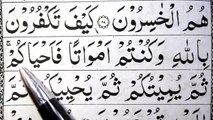 هُمُ الْخٰسِرُوْنَ ﴿۲۷﴾ كَيْفَ تَكْفُرُوْنَ
بِاللّٰهِ وَكُنْتُمْ اَمْوَاتًا فَاَحْيَاكُمْ
ثُمَّ يُمِيْتُكُمْ ثُمَّ يُحْيِيْكُمْ